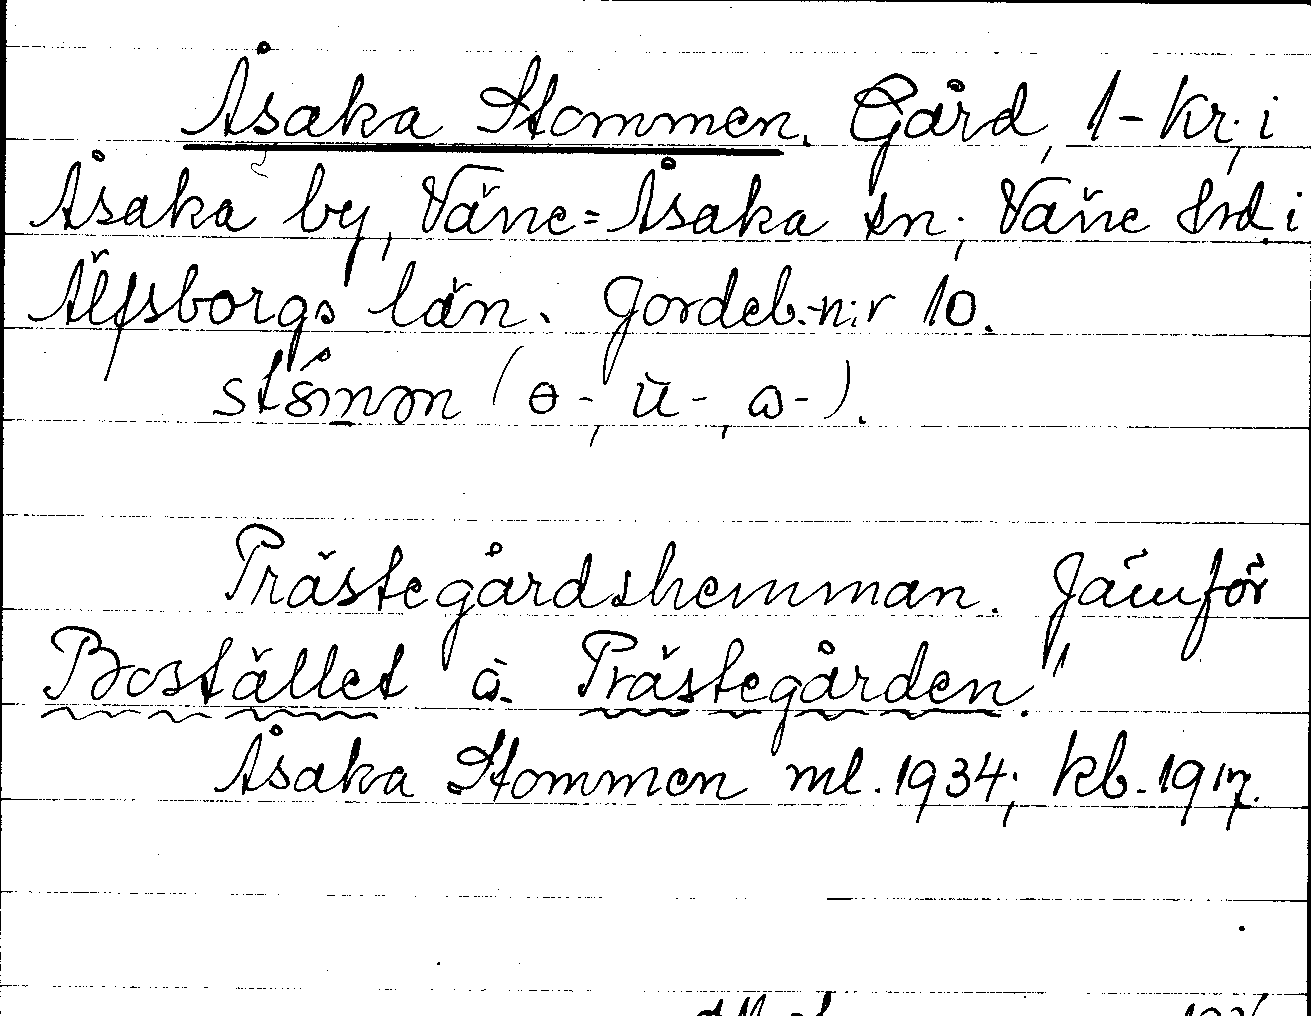 Åsaka Stommen. Gård, 1-kr., i
Åsaka by, Väne=Åsaka sn, Väne hrd. i
Älfsborgs län. Jordeb.-n:r 10.
Prästegårdshemman. Jämför
Bostället o. Prästegården.
Åsaka Stommen ml. 1934; kb. 1917.